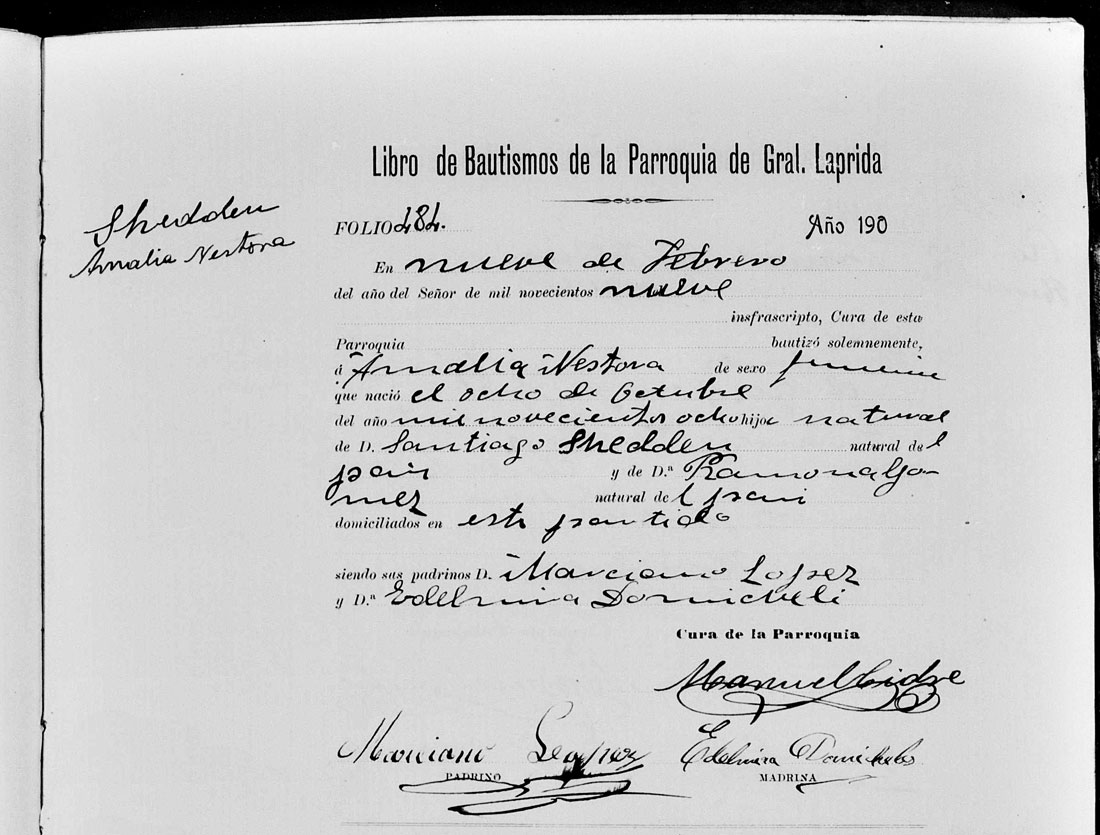 Libro de Bautismos de la Parroquia de Gral. Laprida
Shedden
Amalia Nestora
FOLIO 484. Año 190
En nueve de Febrero
del año del Señor de mil novecientos nueve
insfrascripto, Cura de esta
Parroquia bautizó solemnemente,
á Amalia Nestora de sexo femenin
que nació el ocho de Octubre
del año mil novecientos ocho hija natural
de D. Santiago Shedden natural del
pais y de D.ª Ramona Go-
mez natural del pais
domiciliados en este partido
siendo sus padrinos D. Marciano Lopez
y D.ª Edelmira Domicheli
Cura de la Parroquia
Manuel Cidre
Marciano Lopez Edelmira
PADRINO MADRINA